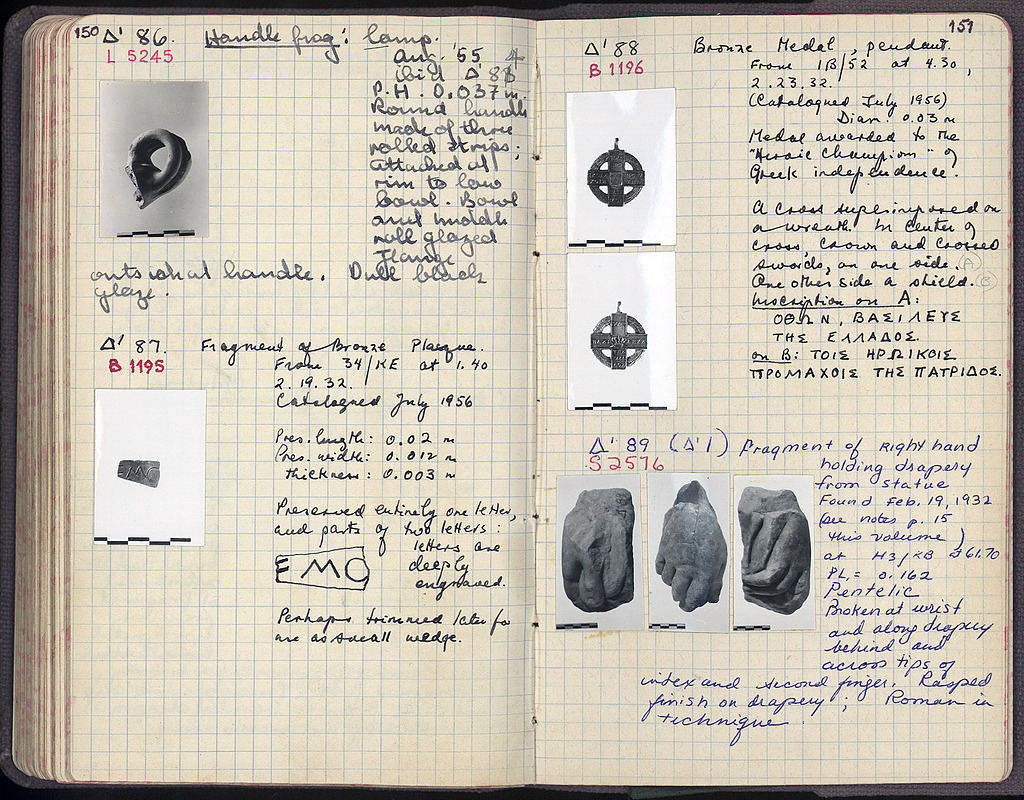 150
Δ' 86. Handle frag: lamp.
L 5245
Aug. '55
ibid Δ' 83
P.H. 0.037 m.
Round handle
made of three
rolled strips;
attached at
rim to low
bowl. Bowl
and handle
well glazed
Flange
outs what handle. Dull black
glaze.
Δ' 87. Fragment of Bronze Plaque.
B 1195
From 34/KE at 1.40
2.19.32.
Catalogued July 1956
Pres. length: 0.02 m
Pres. width: 0.012 m
thickness: 0.003 m
Preserved entirely one letter,
and parts of two letters:
letters are
deeply
engraved.
EMO
Perhaps trimmed later for
use as small wedge.
151
Δ' 88 Bronze Medal, pendant.
B 1196
From 1B/52 at 4.30,
2.23.32.
(Catalogued July 1956)
Diam. 0.03 m
Medal awarded to the
"Heroic Champion" of
Greek independence.
A cross superimposed on
a wreath. In center of
cross, crown and crossed
swords, on one side. (A)
One other side a shield. (B)
Inscription on A:
ΟΘΩΝ, ΒΑΣΙΛΕΥΣ
ΤΗΣ ΕΛΛΑΔΟΣ.
on B: ΤΟΙΣ ΗΡΩΙΚΟΙΣ
ΠΡΟΜΑΧΟΙΣ ΤΗΣ ΠΑΤΡΙΔΟΣ.
Δ' 89 (Δ' 1) Fragment of Right hand
S 2576
holding drapery
from statue
Found Feb. 19, 1932
(see notes p. 15
this volume)
at H3/KB 61.70
PL. = 0.162
Pentelic
Broken at wrist
and along drapery
behind and
across tips of
index and second finger. Rasped
finish on drapery; Roman in
technique.